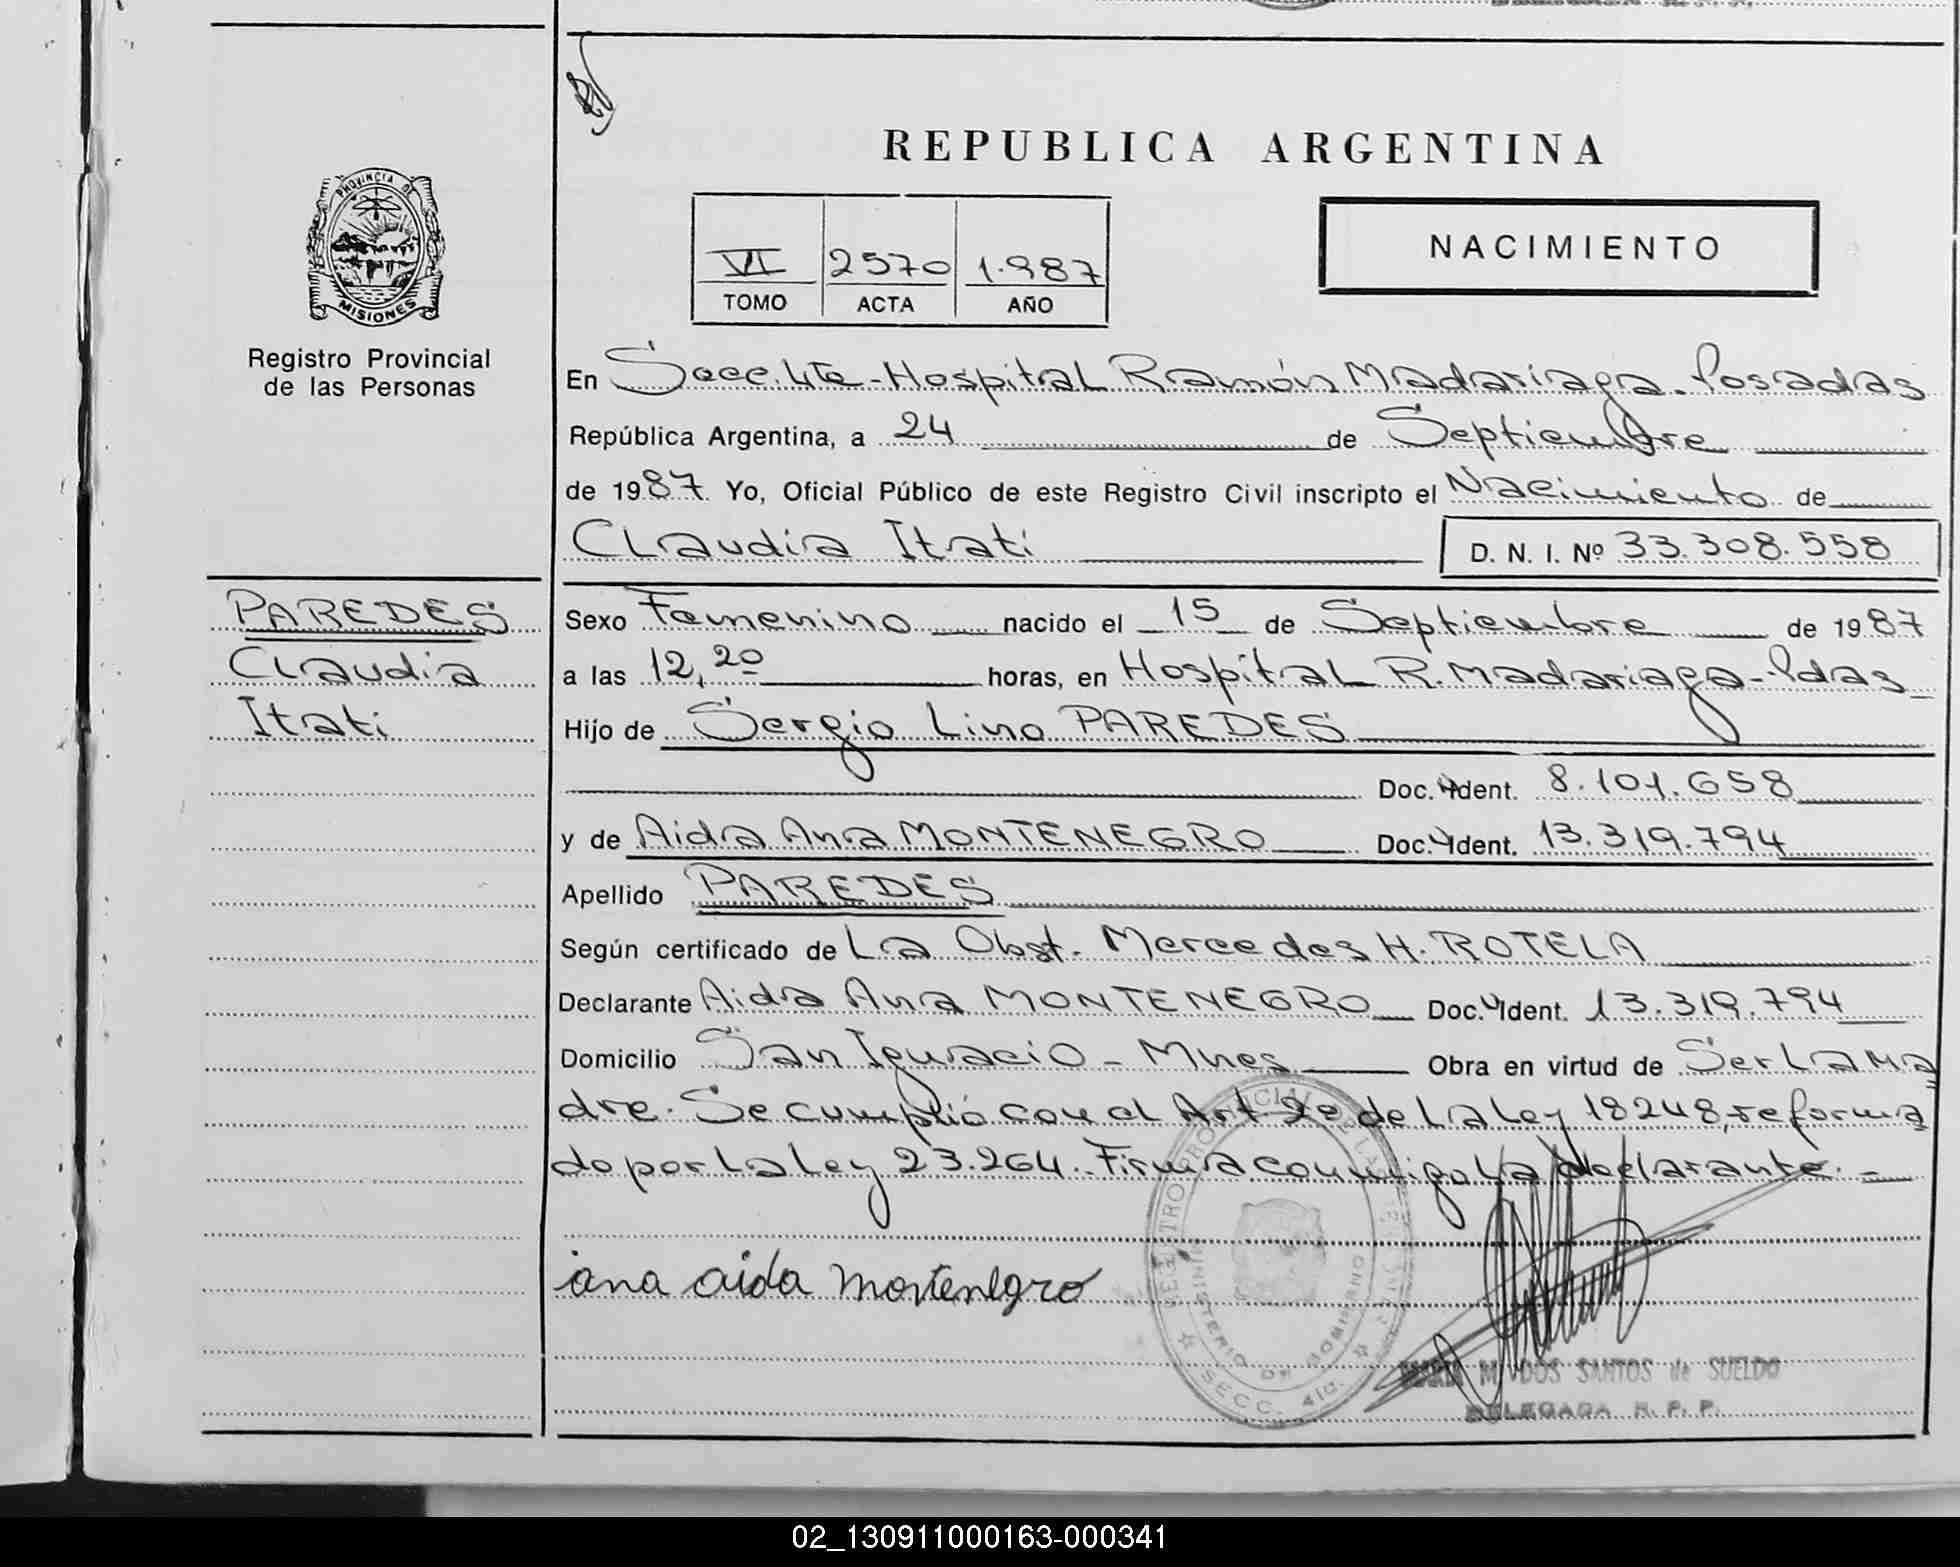 REPUBLICA ARGENTINA
PROVINCIA DE
MISIONES
Registro Provincial
de las Personas
VI 2570 1.987
TOMO ACTA AÑO
NACIMIENTO
En Secc. 4ta - Hospital Ramón Madariaga - Posadas
República Argentina, a 24 de Septiembre
de 1987. Yo, Oficial Público de este Registro Civil inscripto el Nacimiento de
Claudia Itatí
D. N. I. Nº 33.308.558
PAREDES
Claudia
Itatí
Sexo Femenino nacido el 15 de Septiembre de 1987
a las 12,20 horas, en Hospital R. Madariaga - Pdas
Hijo de Sergio Lino PAREDES
Doc. Ident. 8.101.658
y de Aida Ana MONTENEGRO Doc. Ident. 13.319.794
Apellido PAREDES
Según certificado de La Obst. Mercedes H. ROTELA
Declarante Aida Ana MONTENEGRO Doc. Ident. 13.319.794
Domicilio San Ignacio - Mnes Obra en virtud de Ser La Ma
dre. Se cumplió con el Art de La Ley 18248, reforma
do por La Ley 23.264. Firma conmigo La declarante. -
ana aida montenegro
REGISTRO PROVINCIAL DE LAS
MINISTERIO DE GOBIERNO
SECC. 4ta.
MARIA M. DOS SANTOS de SUELDO
DELEGADA R. P. P.
02_130911000163-000341